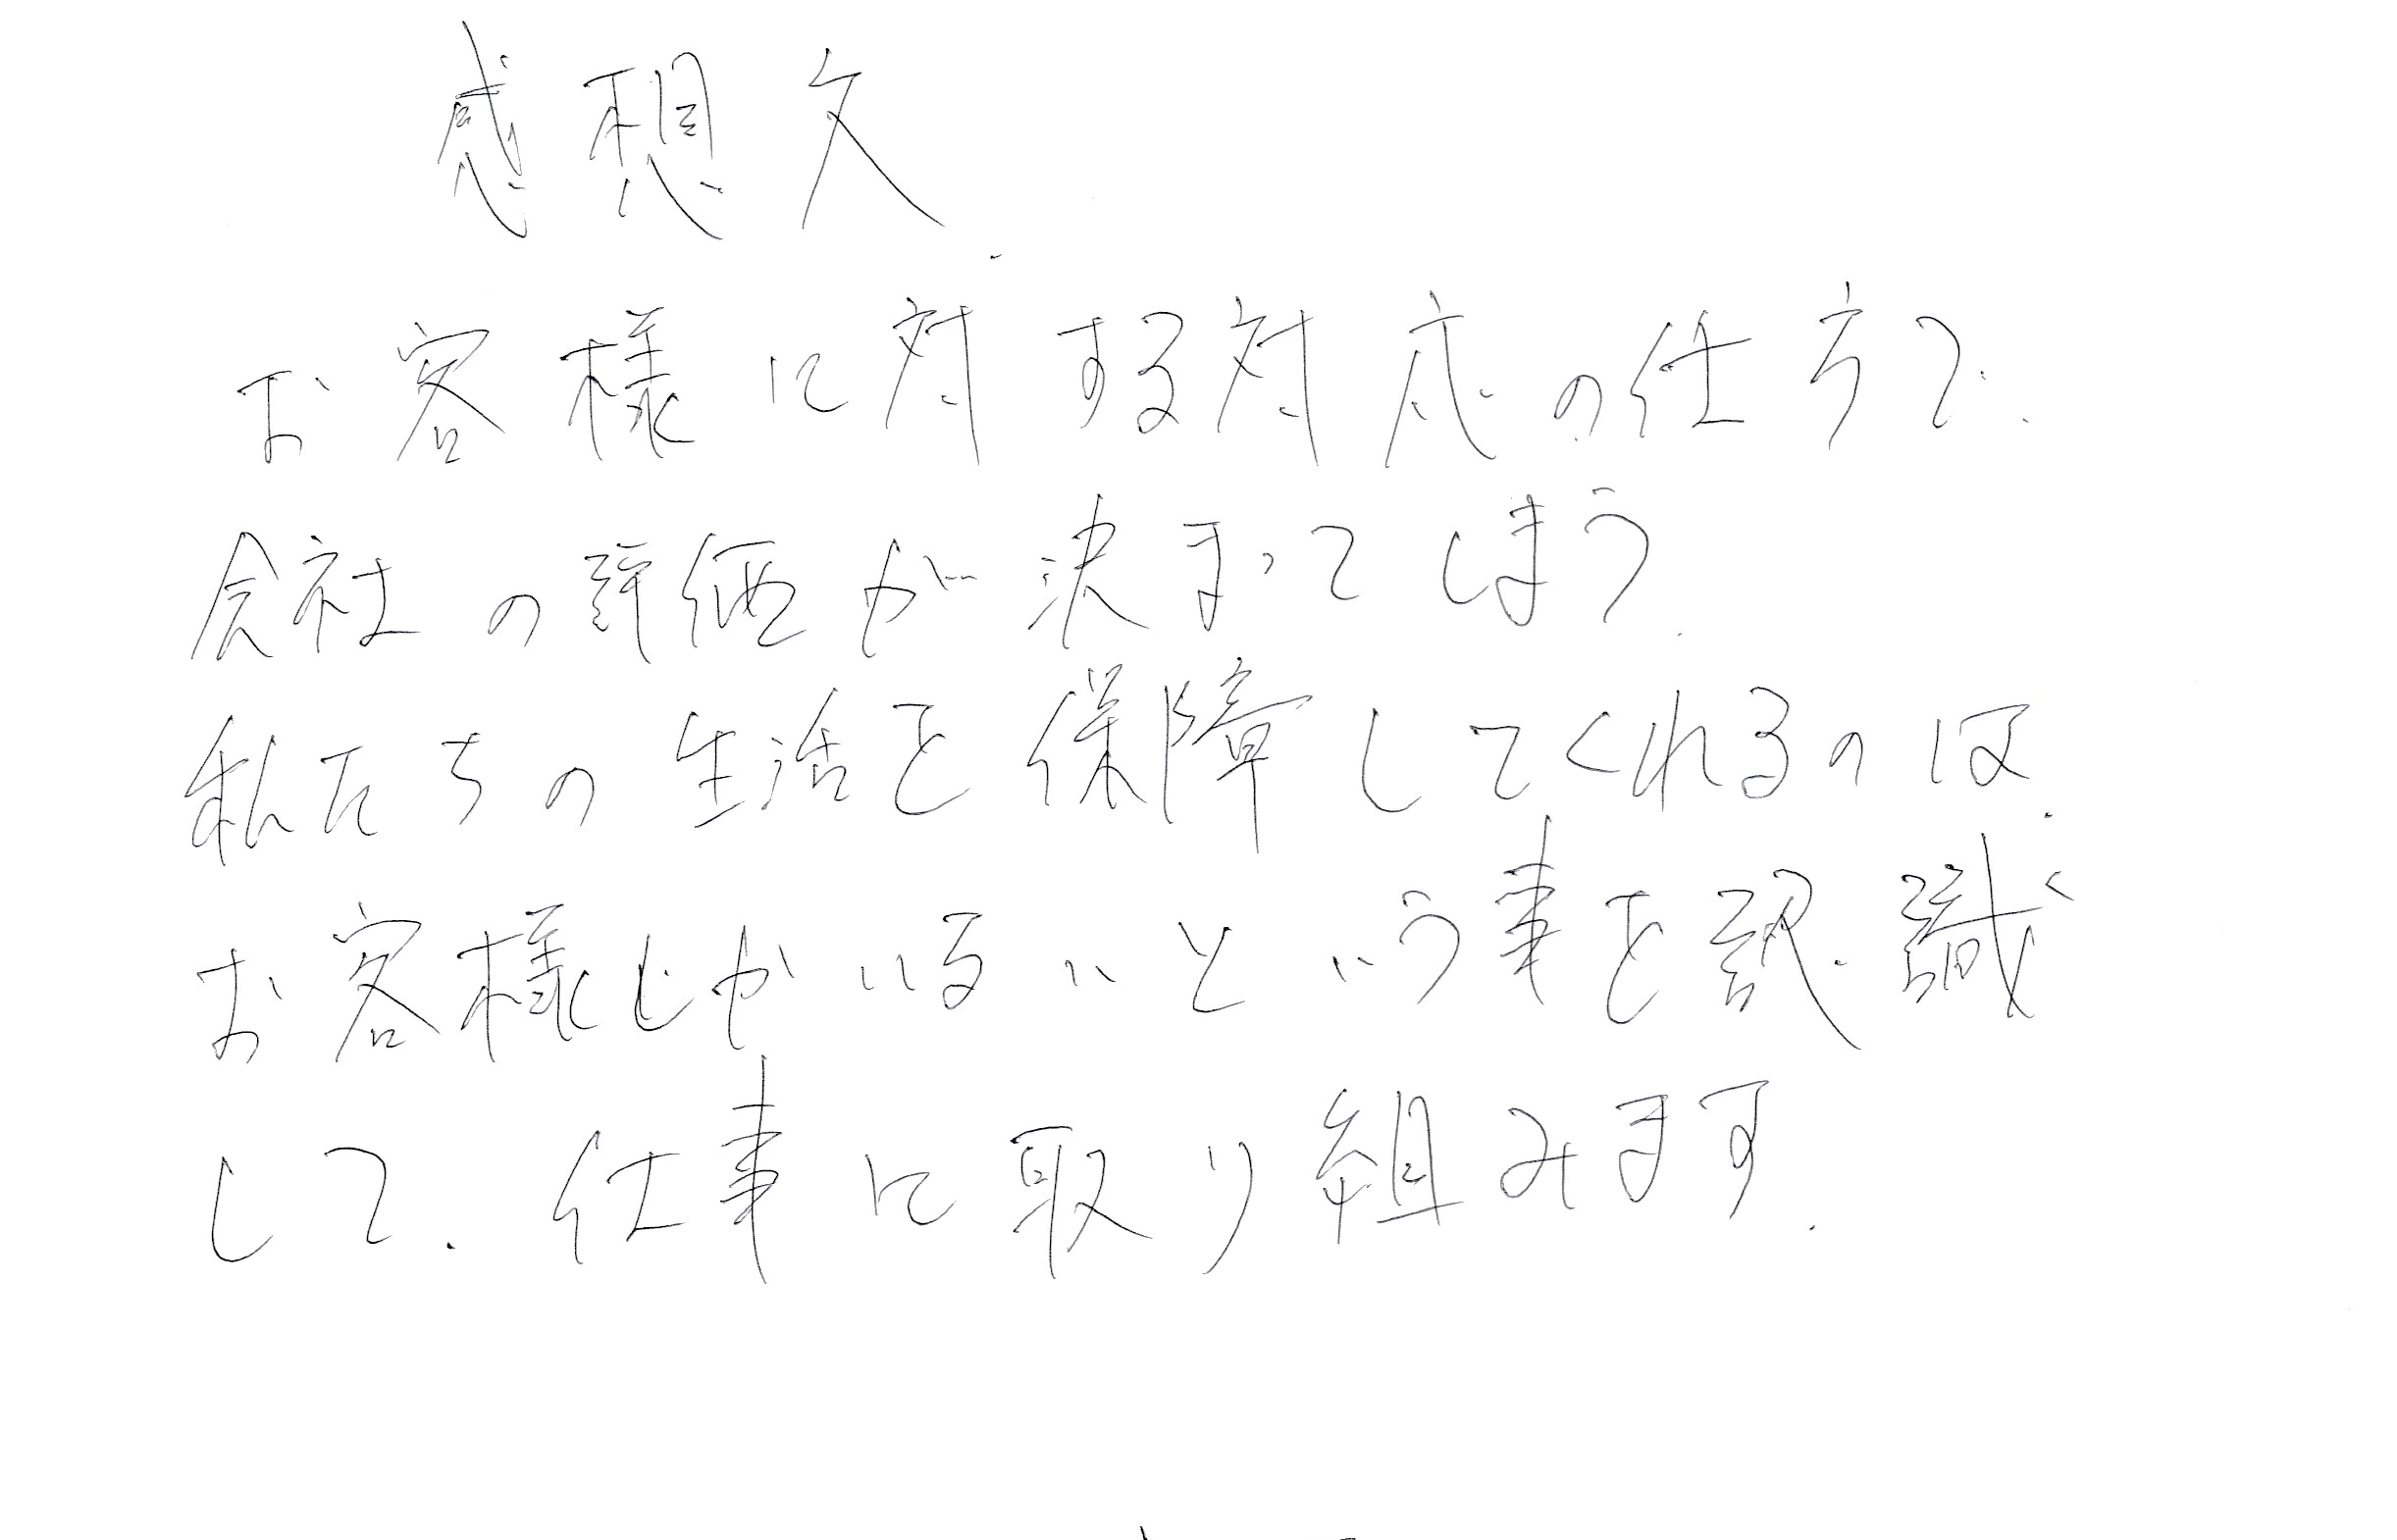 感想文
お客様に対する対応の仕方で、
会社の評価が決まってしまう。
私たちの生活を保障してくれるのは、
お客様しかいないという事を認識
して、仕事に取り組みます。